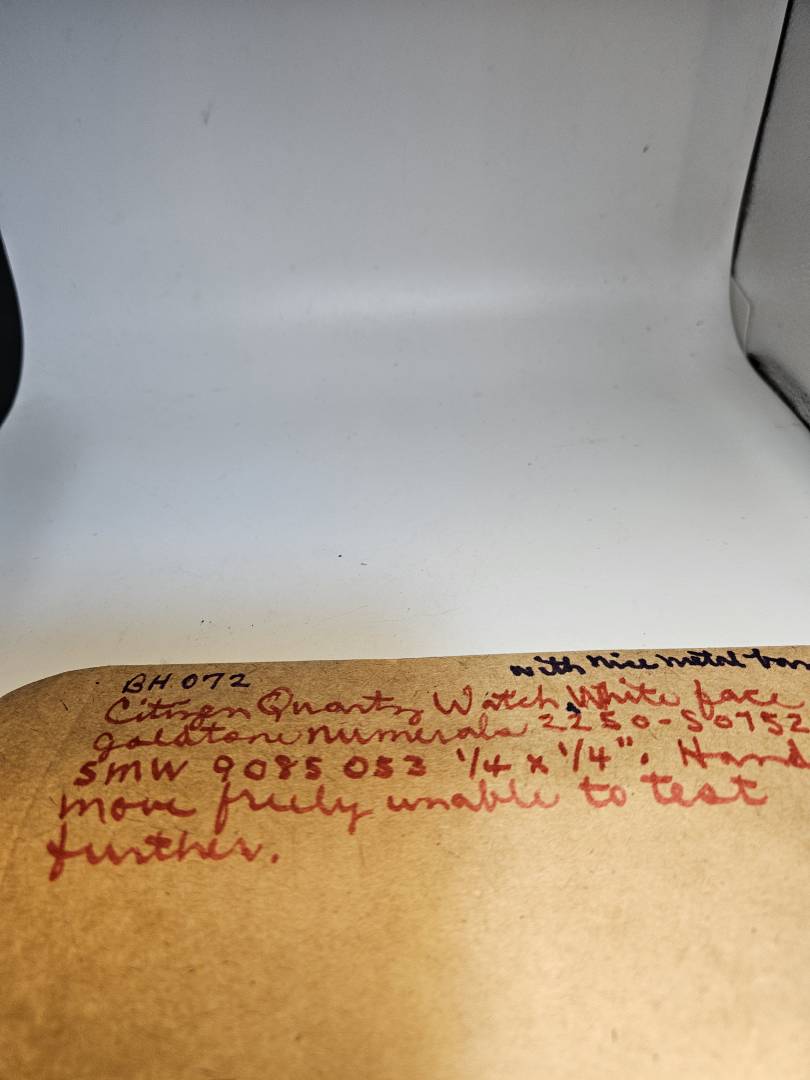 BH 072
with nice metal ban
Citizen Quartz Watch White face
goldtone numerals 2250-S0752
SMW 9085 053 1/4 x 1/4". Hand
move freely unable to test
further.